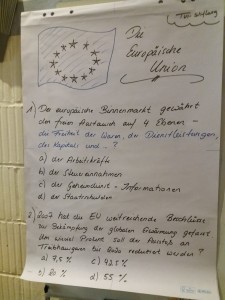 Die
Europäische
Union
1) Der europäische Binnenmarkt gewährt
den freien Austausch auf 4 Ebenen -
die Freiheit der Waren, der Dienstleistungen,
des Kapitals und ... ?
a) der Arbeitskräfte
b) der Steuereinnahmen
c) der Geheimdienst-Informationen
d) der Staatsschulden
2) 2007 hat die EU weitreichende Beschlüsse
zur Bekämpfung der globalen Erwärmung gefasst
Um wieviel Prozent soll der Ausstoß an
Treibhausgasen bis 2020 reduziert werden?
a) 7,5 % c) 42,5 %
b) 20 % d) 55 %